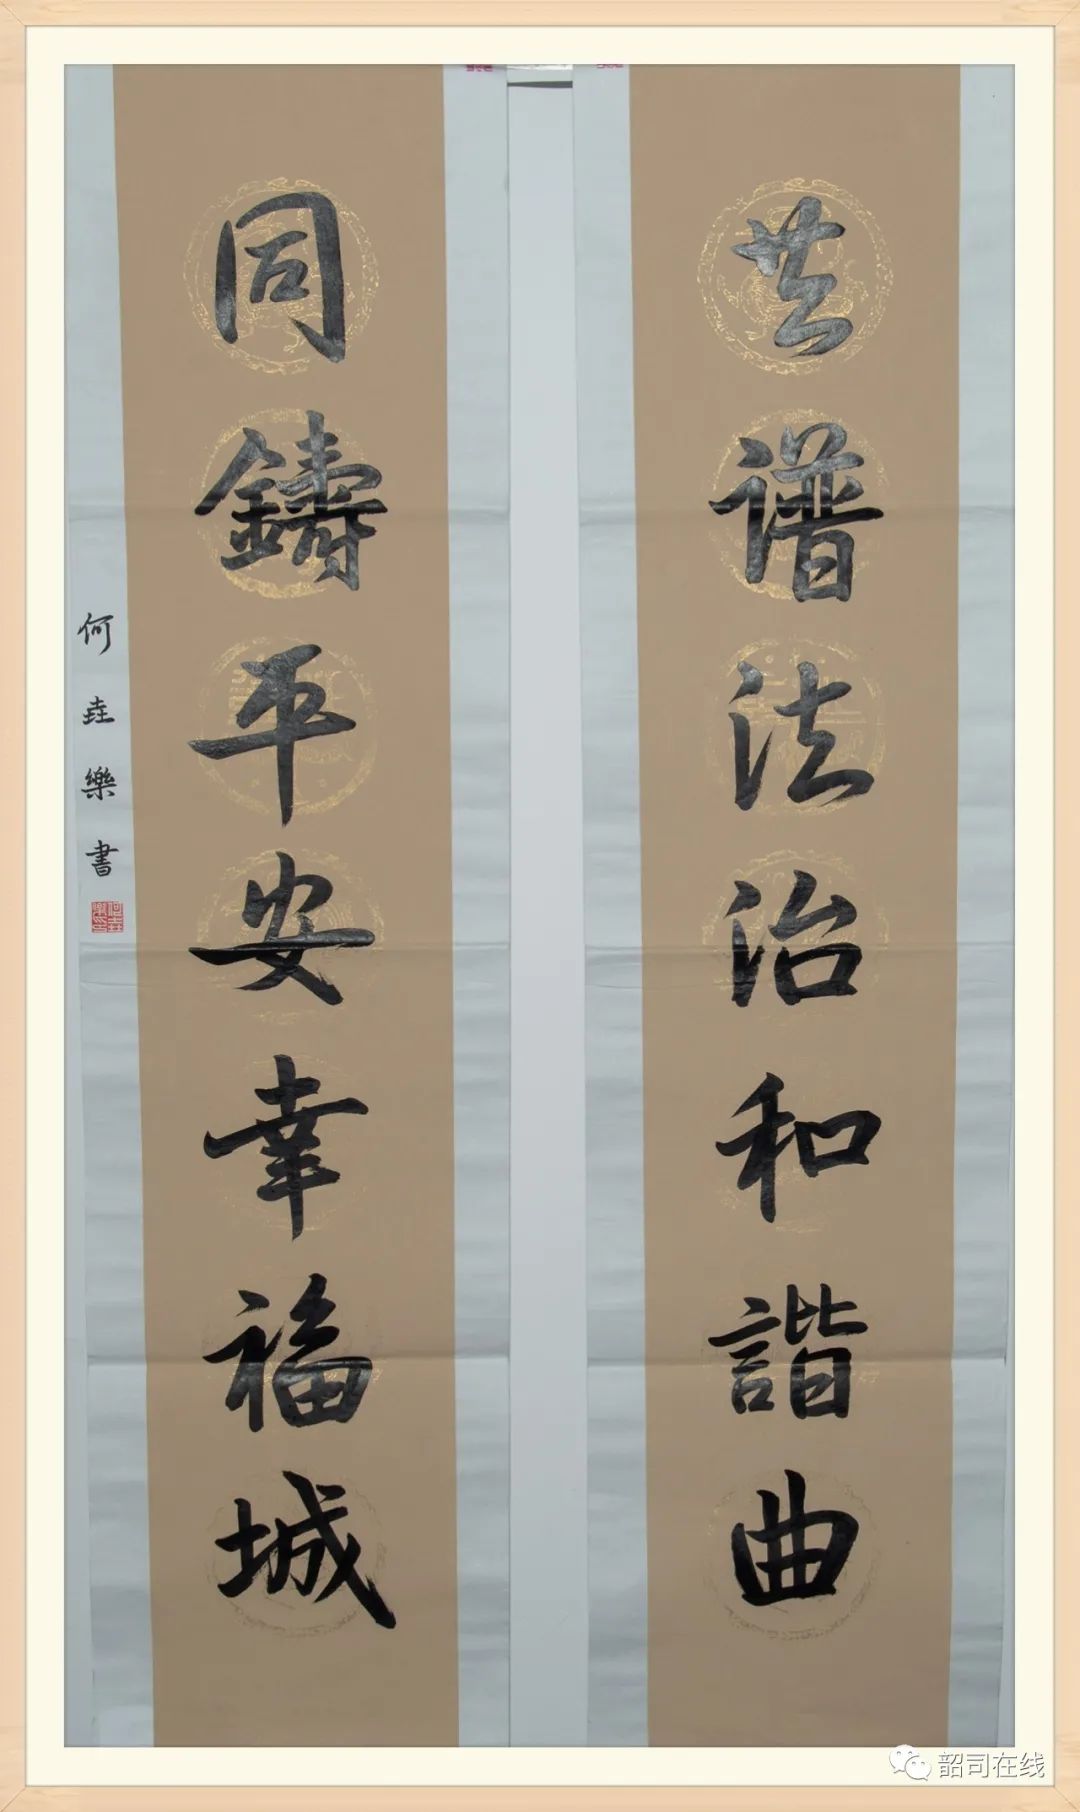 共谱法治和諧曲
同鑄平安幸福城
何垚樂書
韶司在线